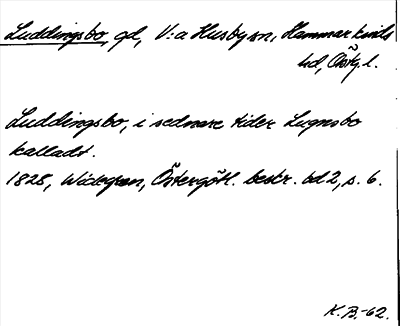 Luddingsbo, gd, V:a Husby sn, Hammarkinds
hd, Östg.l.
Luddingsbo, i sednare tider Lugnsbo
kalladt.
1828, Widegren, Östergötl. beskr. bd 2, s. 6.
K.B.-62.